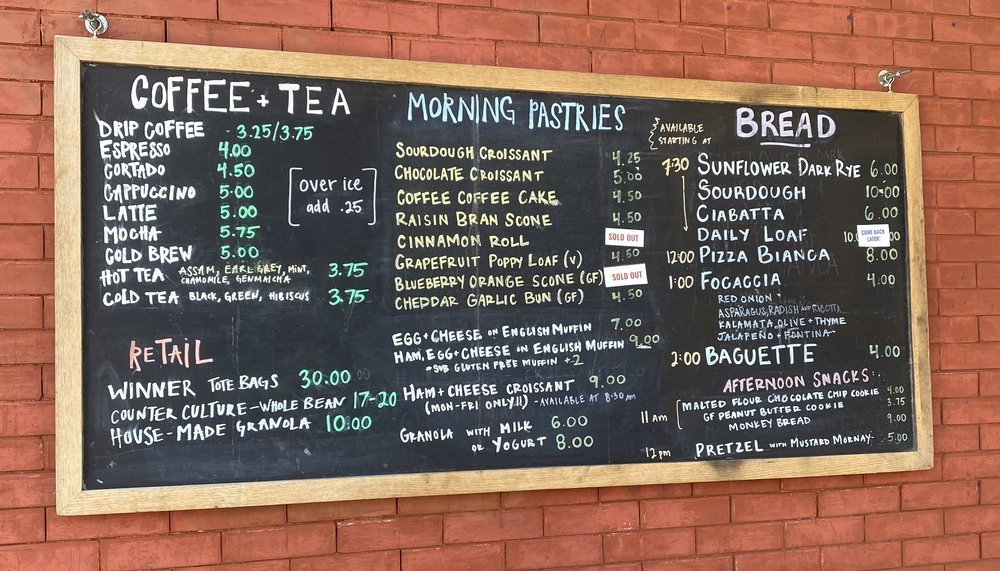 COFFEE + TEA
DRIP COFFEE - 3.25/3.75
ESPRESSO 4.00
CORTADO 4.50
CAPPUCCINO 5.00
LATTE 5.00
MOCHA 5.75
COLD BREW 5.00
over ice
add .25
HOT TEA ASSAM, EARL GREY, MINT, 3.75
CHAMOMILE, GENMAICHA
COLD TEA BLACK, GREEN, HIBISCUS 3.75
RETAIL
WINNER TOTE BAGS 30.00
COUNTER CULTURE - WHOLE BEAN 17-20
HOUSE-MADE GRANOLA 10.00
MORNING PASTRIES
SOURDOUGH CROISSANT 4.25
CHOCOLATE CROISSANT 5.00
COFFEE COFFEE CAKE 4.50
RAISIN BRAN SCONE 4.50
CINNAMON ROLL SOLD OUT
GRAPEFRUIT POPPY LOAF (V) 4.50
BLUEBERRY ORANGE SCONE (GF) SOLD OUT
CHEDDAR GARLIC BUN (GF) 4.50
EGG + CHEESE ON ENGLISH MUFFIN 7.00
HAM, EGG + CHEESE ON ENGLISH MUFFIN 9.00
*SUB GLUTEN FREE MUFFIN +2
HAM + CHEESE CROISSANT 9.00
(MON-FRI ONLY!!) - AVAILABLE AT 8:30AM
GRANOLA WITH MILK 6.00
OR YOGURT 8.00
BREAD
AVAILABLE
STARTING AT
7:30 SUNFLOWER DARK RYE 6.00
SOURDOUGH 10.00
CIABATTA 6.00
DAILY LOAF COME BACK
LATER:
12:00 PIZZA BIANCA 8.00
1:00 FOCACCIA 4.00
RED ONION
ASPARAGUS, RADISH AND RICOTTA
KALAMATA OLIVE + THYME
JALAPEÑO + FONTINA
2:00 BAGUETTE 4.00
AFTERNOON SNACKS:
11 am MALTED FLOUR CHOCOLATE CHIP COOKIE 4.00
GF PEANUT BUTTER COOKIE 3.75
MONKEY BREAD 9.00
12 pm PRETZEL WITH MUSTARD MORNAY - 5.00